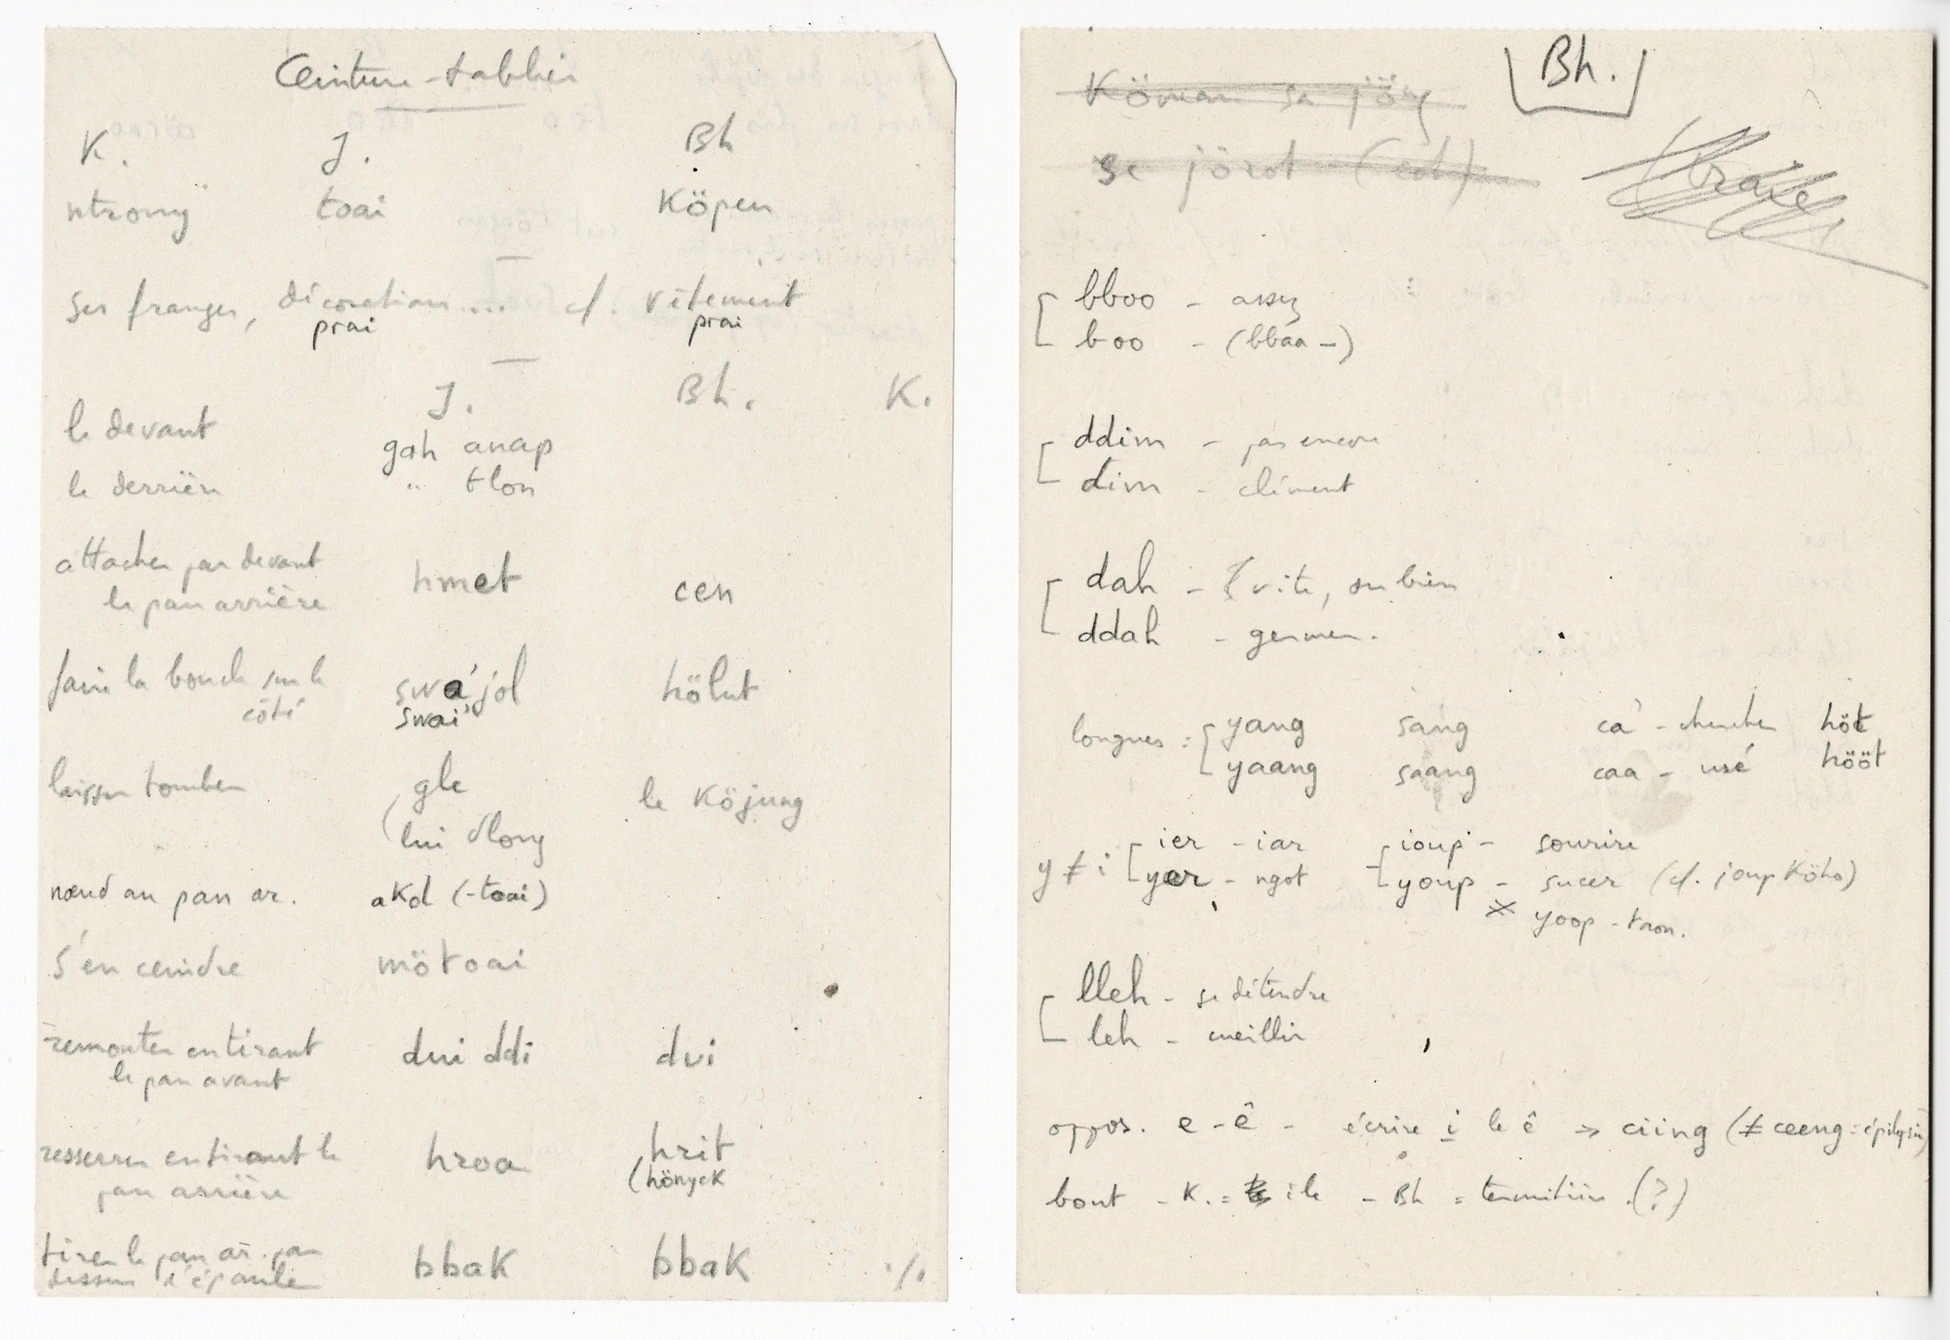 Ceinture-tablier
K. J. Bh
ntrony toai Köpen
ses franges, décoration ... cf. vêtement
prai prai
J. Bh. K.
le devant gah anap
le derrière " tlon
attacher par devant hmet cen
le pan arrière
faire la boucle sur le swa'jol hölut
côté swai'
laisser tomber gle le Köjung
(lui dlong
nœud au pan ar. akol (-toai)
s'en ceindre mötoai
remonter en tirant dui ddi dui
le pan avant
resserrer en tirant le hroa hrit
pan arrière (hönyck
tirer le pan ar. par bbak bbak ./.
dessus l'épaule
Bh.
Köman sa jöng
se jörot
bboo - assez
boo - (bbaa -)
ddim - pas encore
dim - clément
dah - vite, ou bien
ddah - germer.
longues : yang sang ca' - chercher höt
yaang saang caa - usé hööt
y ≠ i ier - iar ioup - sourire
yer - ngot youp - sucer (cf. joup Köho)
x yoop - taon.
lleh - se détendre
leh - cueillir
oppos. e - ê - écrire i le ê → ciing (≠ ceeng = épilepsie)
bout - K. = ile - Bh = termitière (?)